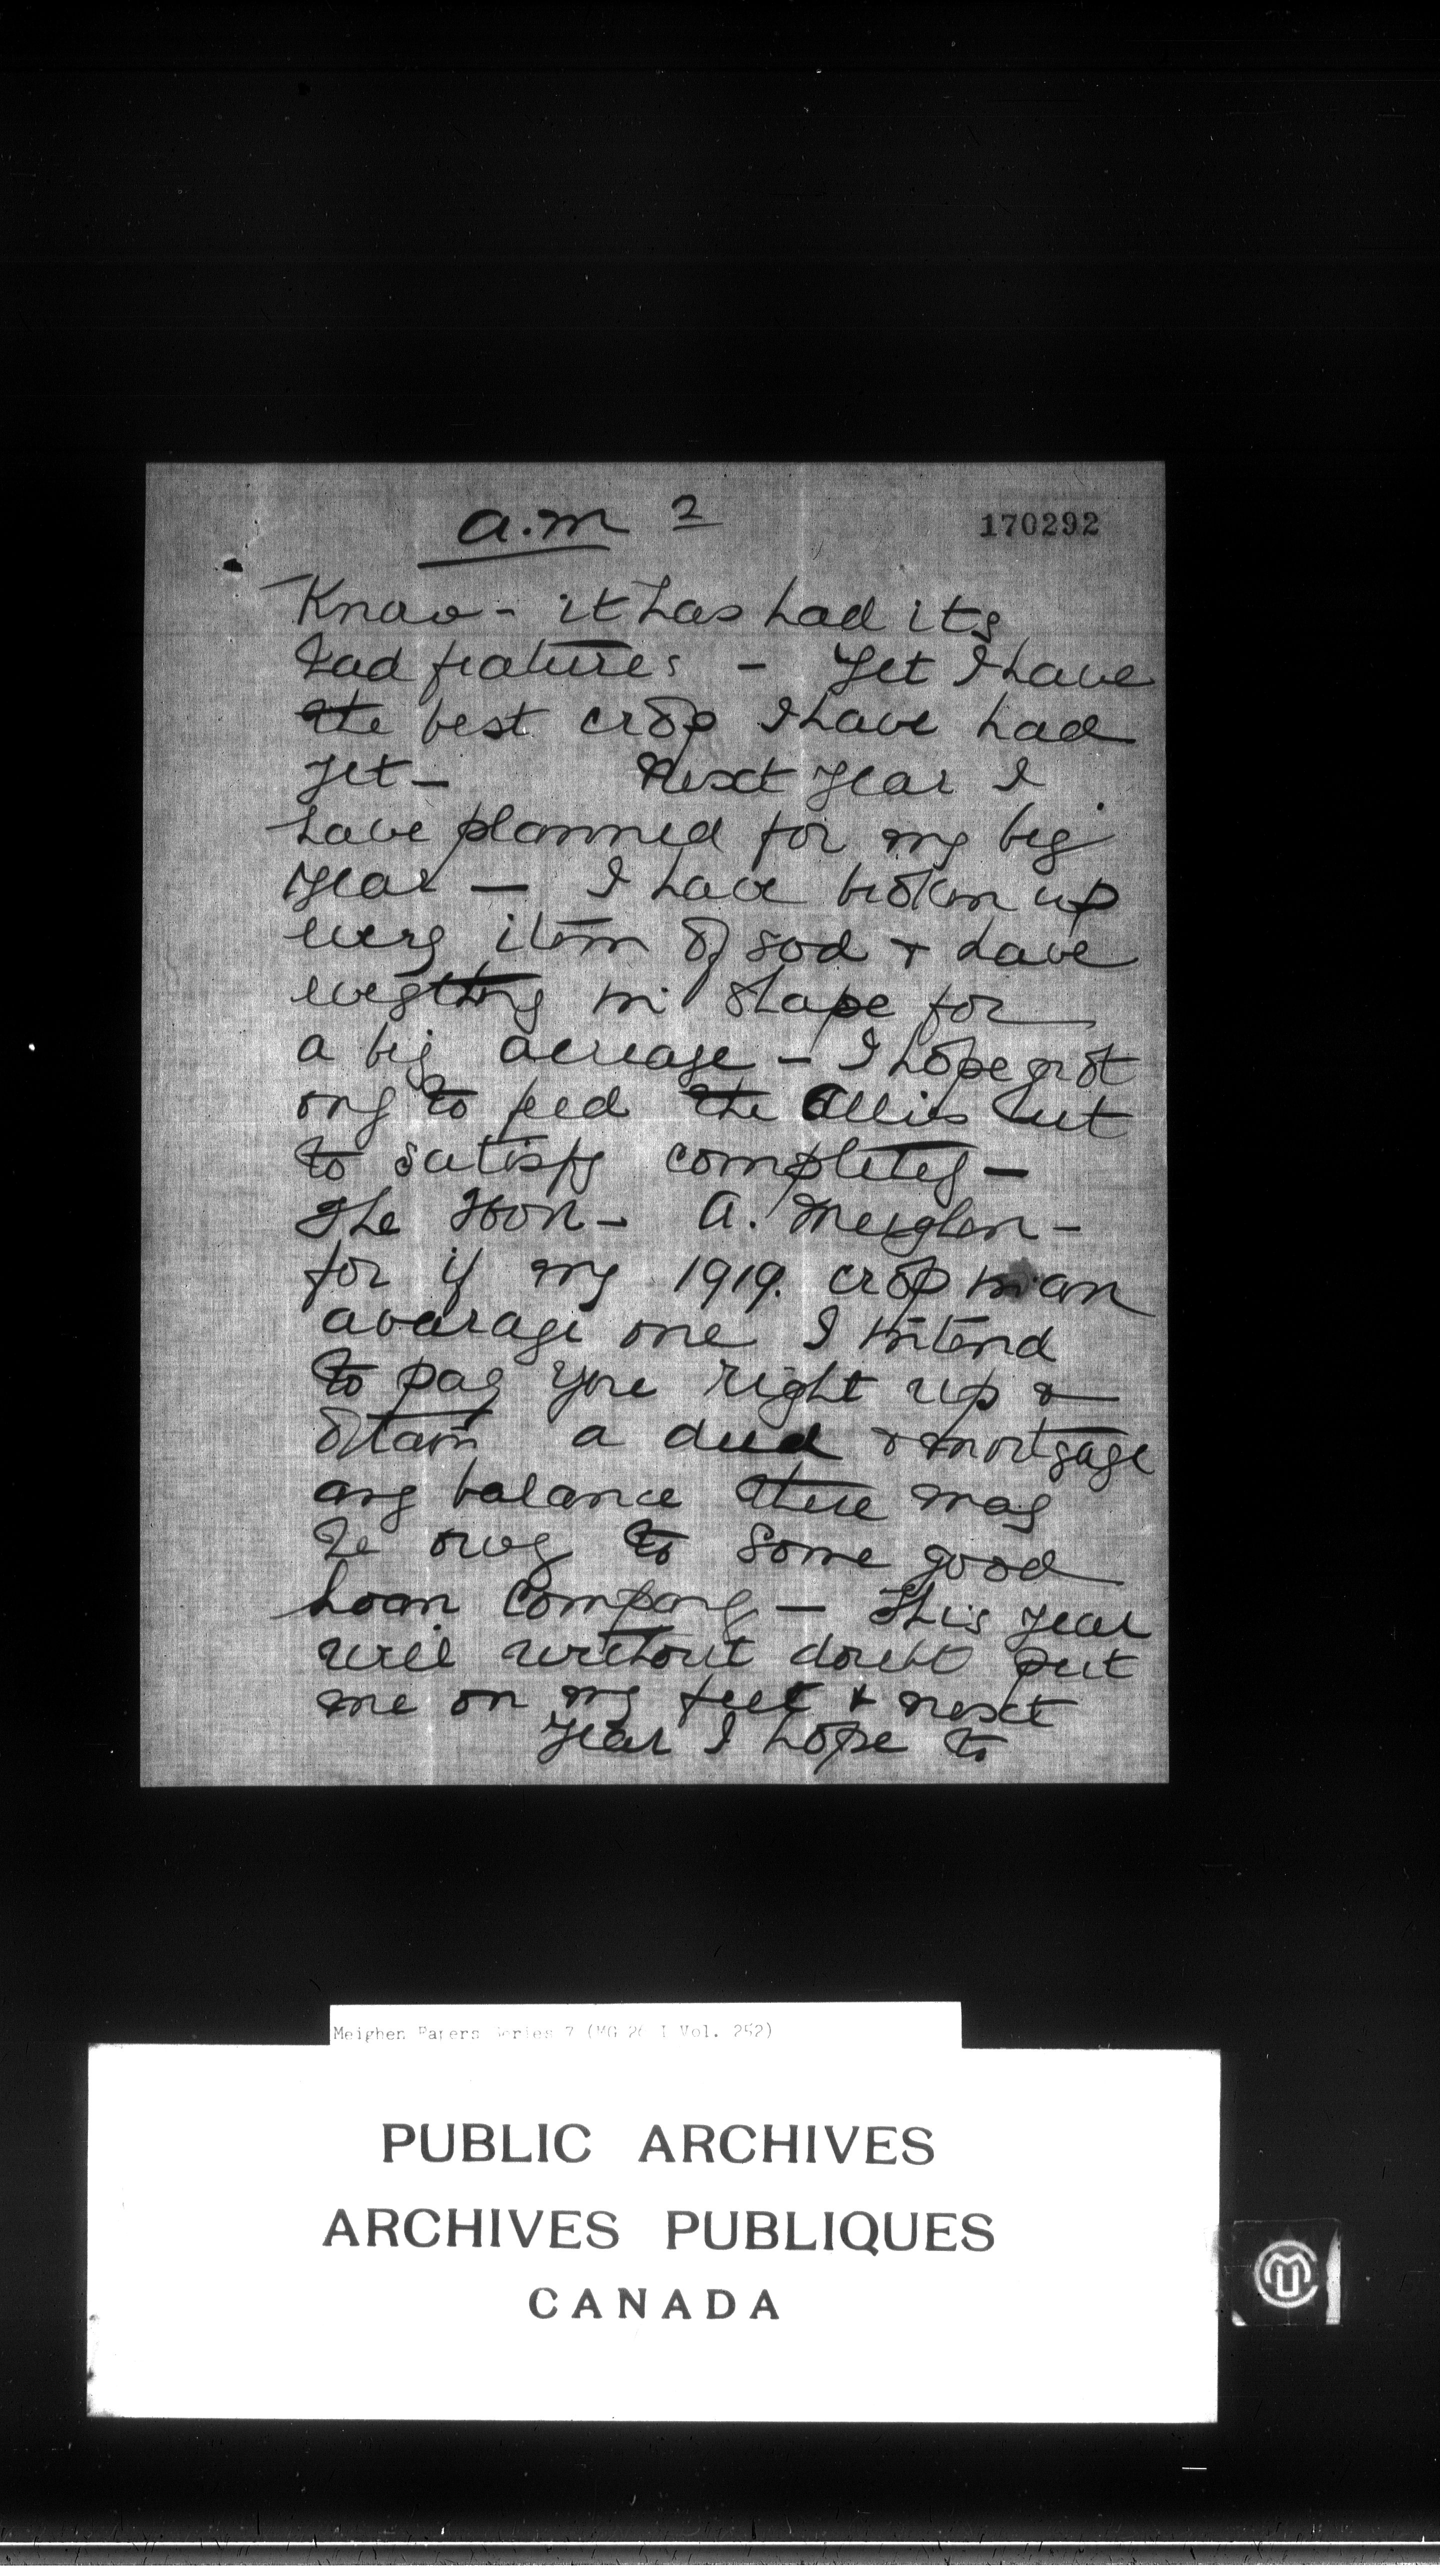 A.M 2
170292
Know - it has had its
bad features - Yet I have
the best crop I have had
yet - Next year I
have planned for my big
year - I have broken up
every item of sod + have
everything in shape for
a big acreage - I hope not
only to feed the Allies but
to satisfy completely -
The Hon - A. Meighen -
for if my 1919. crop is an
avarage one I intend
to pay you right up &
obtain a deed & mortgage
any balance there may
be owing to some good
Loan Company - This year
will without doubt put
me on my feet & next
year I hope to
Meighen Papers Series 7 (MG 26 I Vol. 252)
PUBLIC ARCHIVES
ARCHIVES PUBLIQUES
CANADA